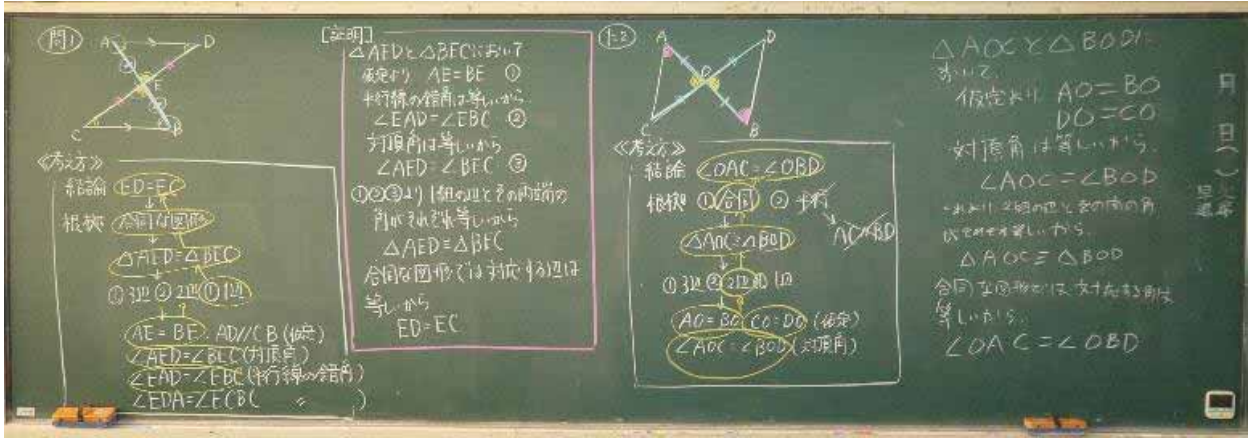 問1
A
D
E
C
B
《考え方》
結論 ED=EC
根拠 合同な図形
△AED≡△BEC
①3辺 ②2辺 ①1辺
AE=BE, AD//CB (仮定)
∠AED=∠BEC (対頂角)
∠EAD=∠EBC (平行線の錯角)
∠EDA=∠ECB ( 〃 )
[証明]
△AEDと△BECにおいて
仮定より AE=BE ①
平行線の錯角は等しいから
∠EAD=∠EBC ②
対頂角は等しいから
∠AED=∠BEC ③
①②③より1組の辺とその両端の
角がそれぞれ等しいから
△AED≡△BEC
合同な図形では対応する辺は
等しいから
ED=EC
A
D
O
C
B
《考え方》
結論 ∠OAC=∠OBD
根拠 ①合同 ②平行
AC//BD
△AOC≡△BOD
①3辺 ②2辺 1辺
AO=BO CO=DO (仮定)
∠AOC=∠BOD (対頂角)
△AOCと△BODに
おいて
仮定より AO=BO
DO=CO
対頂角は等しいから、
∠AOC=∠BOD
2組の辺とその間の角
がそれぞれ等しいから、
△AOC≡△BOD
合同な図形では対応する角は
等しいから、
∠OAC=∠OBD
月
日